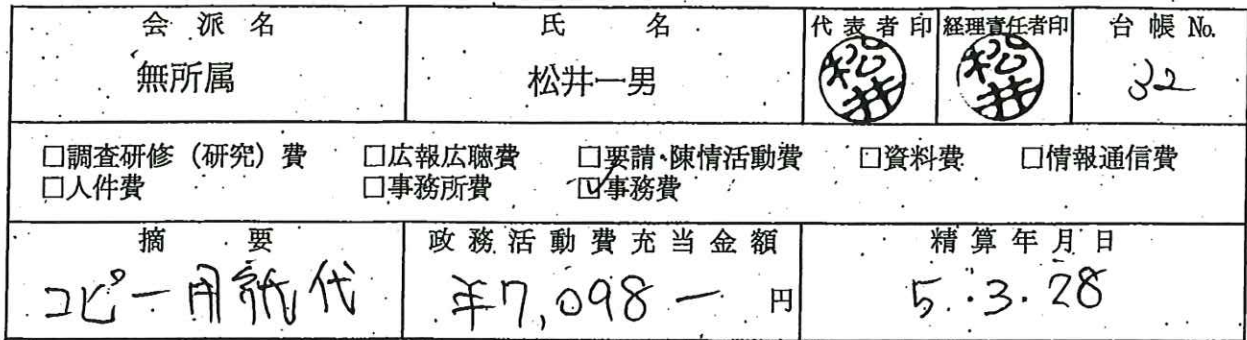 会派名 氏名 代表者印 経理責任者印 台帳No.
無所属 松井一男 松井 松井 32
□調査研修(研究)費 □広報広聴費 □要請・陳情活動費 □資料費 □情報通信費
□人件費 □事務所費 ☑事務費
摘要 政務活動費充当金額 精算年月日
コピー用紙代 ¥7,098− 円 5.3.28